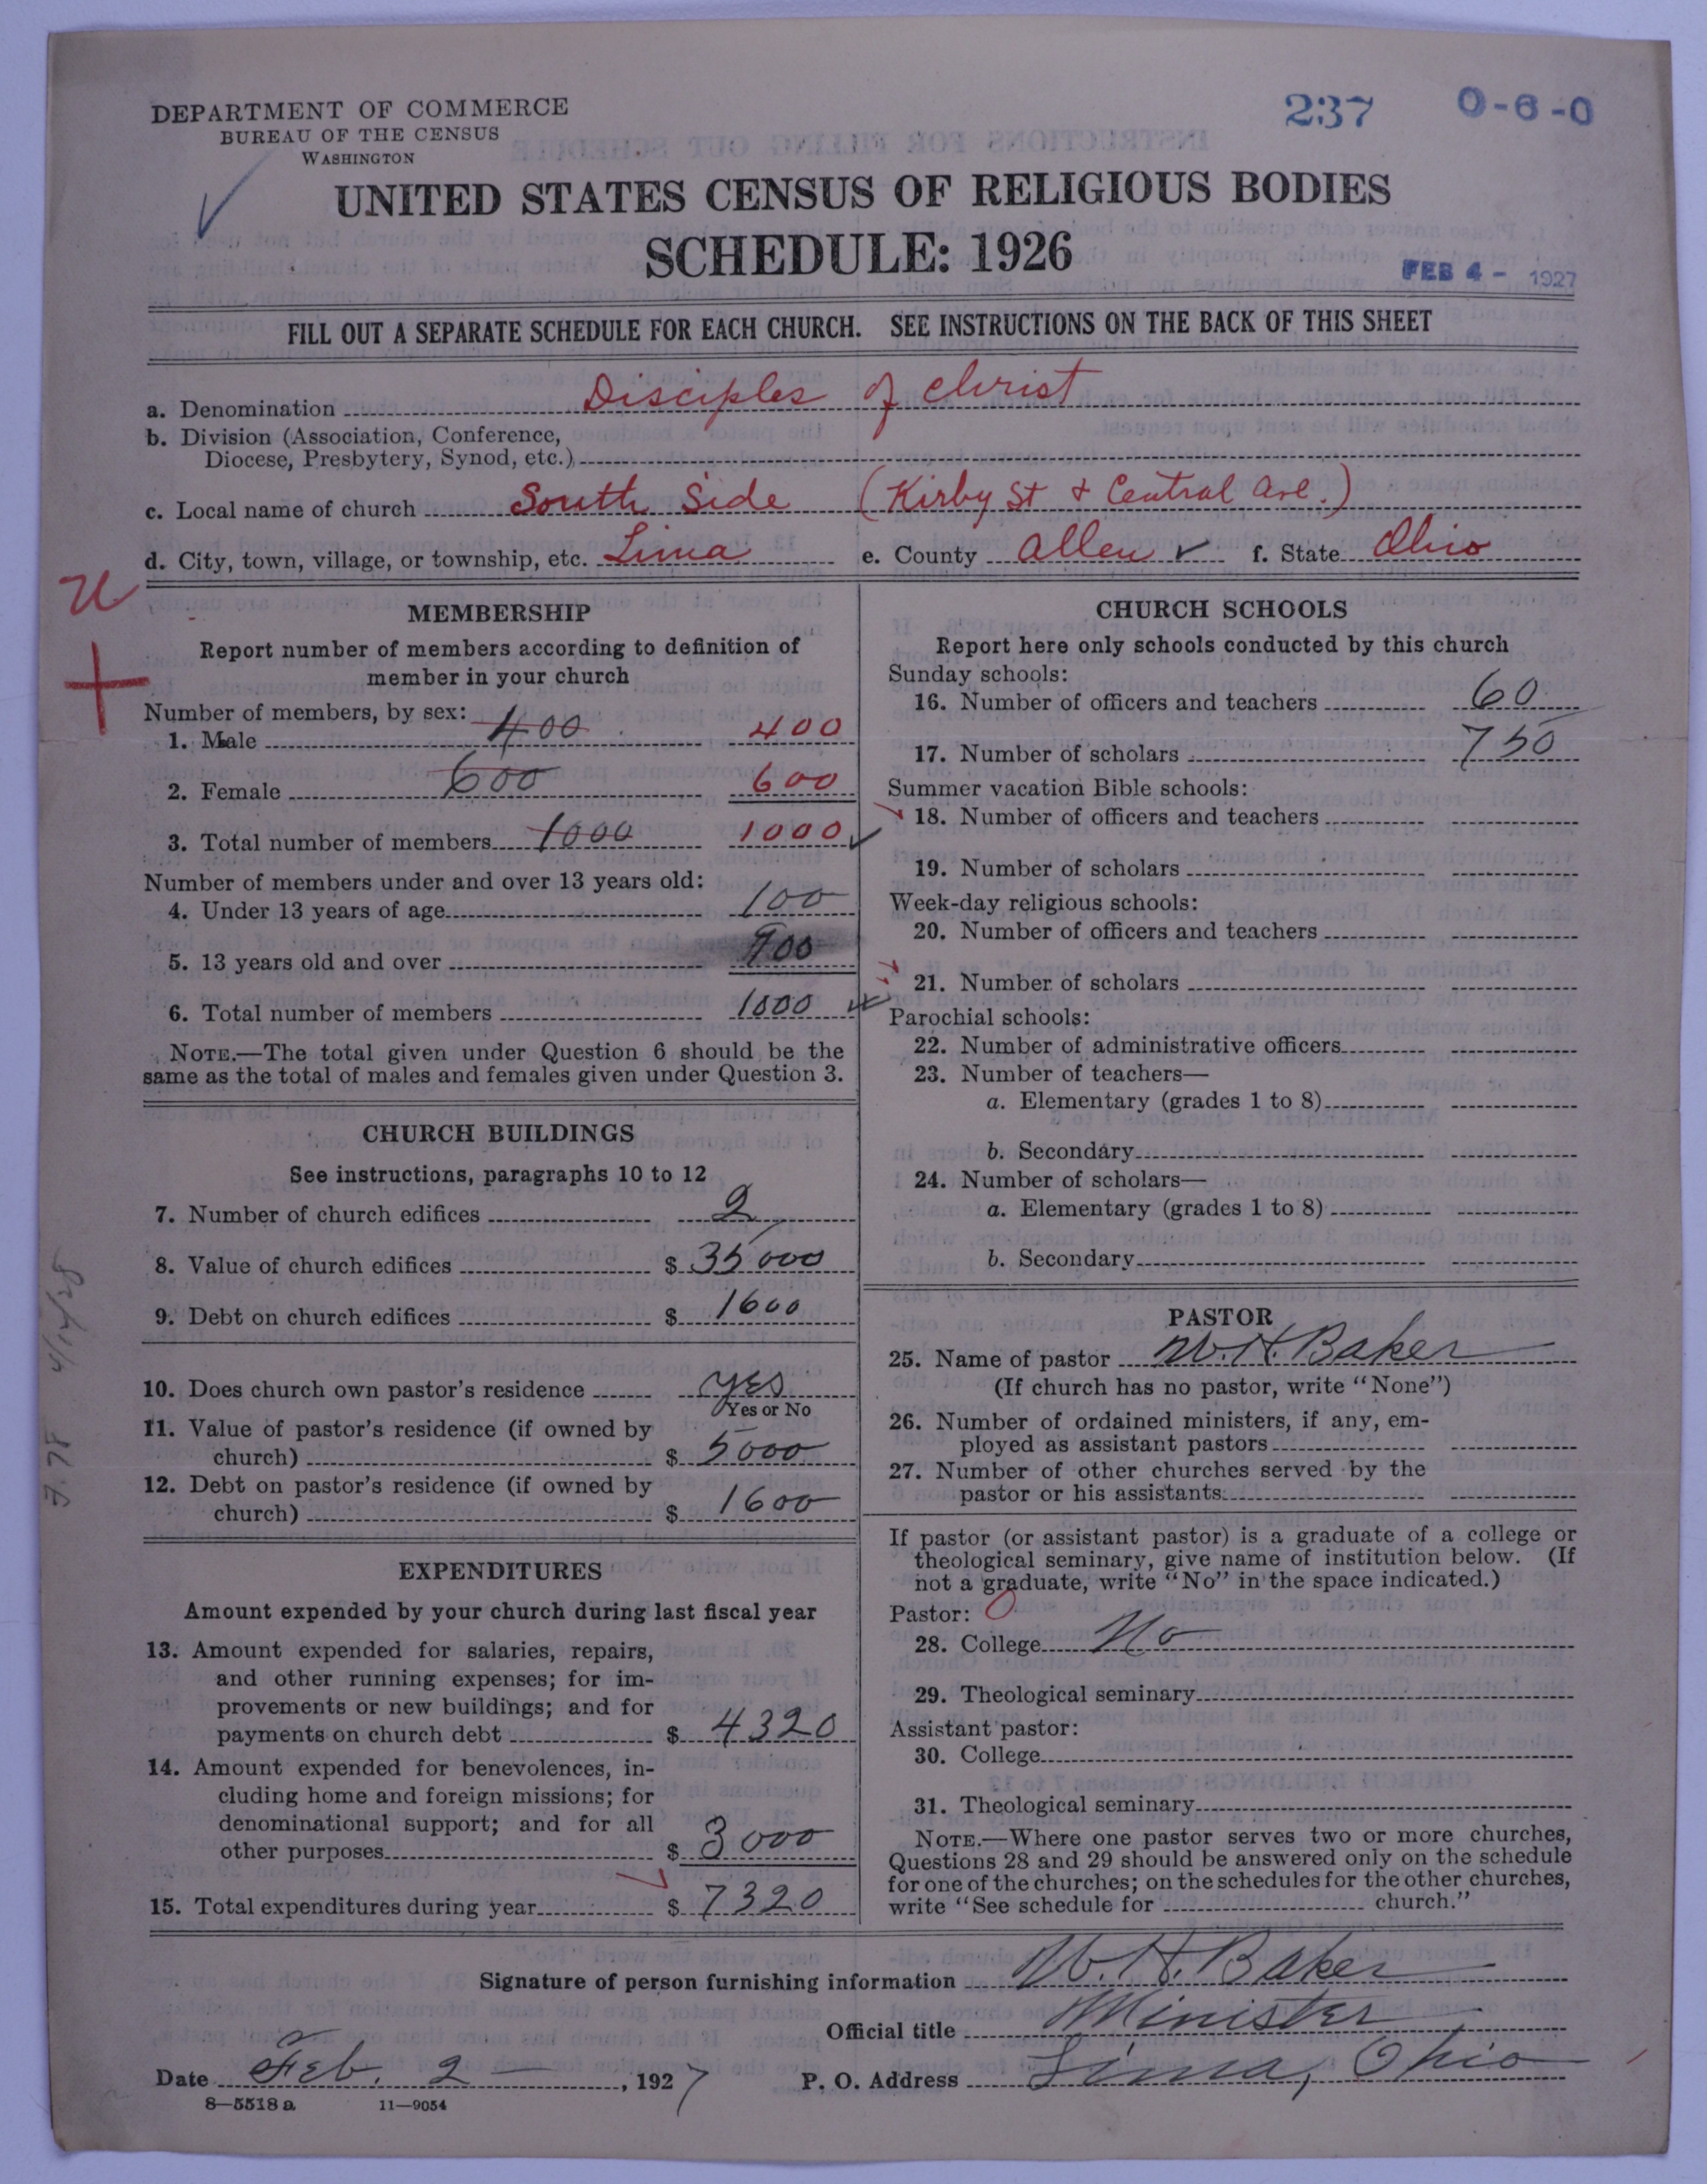 DEPARTMENT OF COMMERCE
BUREAU OF THE CENSUS
WASHINGTON
237 0-6-0
UNITED STATES CENSUS OF RELIGIOUS BODIES
SCHEDULE: 1926
FEB 4 - 1927
FILL OUT A SEPARATE SCHEDULE FOR EACH CHURCH. SEE INSTRUCTIONS ON THE BACK OF THIS SHEET
a. Denomination Disciples of Christ
b. Division (Association, Conference,
Diocese, Presbytery, Synod, etc.)
c. Local name of church South Side (Kirby St + Central Ave.)
d. City, town, village, or township, etc. Lima e. County Allen ✓ f. State Ohio
MEMBERSHIP
Report number of members according to definition of
member in your church
Number of members, by sex:
1. Male 400 400
2. Female 600 600
3. Total number of members 1000 1000 ✓
Number of members under and over 13 years old:
4. Under 13 years of age 100
5. 13 years old and over 900
6. Total number of members 1000
NOTE.—The total given under Question 6 should be the
same as the total of males and females given under Question 3.
CHURCH BUILDINGS
See instructions, paragraphs 10 to 12
7. Number of church edifices 2
8. Value of church edifices $ 35,000
9. Debt on church edifices $ 1600
10. Does church own pastor's residence yes
Yes or No
11. Value of pastor's residence (if owned by
church) $ 5000
12. Debt on pastor's residence (if owned by
church) $ 1600
EXPENDITURES
Amount expended by your church during last fiscal year
13. Amount expended for salaries, repairs,
and other running expenses; for im-
provements or new buildings; and for
payments on church debt $ 4320
14. Amount expended for benevolences, in-
cluding home and foreign missions; for
denominational support; and for all
other purposes $ 3000
15. Total expenditures during year $ 7320
CHURCH SCHOOLS
Report here only schools conducted by this church
Sunday schools:
16. Number of officers and teachers 60
17. Number of scholars 750
Summer vacation Bible schools:
18. Number of officers and teachers
19. Number of scholars
Week-day religious schools:
20. Number of officers and teachers
21. Number of scholars
Parochial schools:
22. Number of administrative officers
23. Number of teachers—
a. Elementary (grades 1 to 8)
b. Secondary
24. Number of scholars—
a. Elementary (grades 1 to 8)
b. Secondary
PASTOR
25. Name of pastor W. H. Baker
(If church has no pastor, write "None")
26. Number of ordained ministers, if any, em-
ployed as assistant pastors
27. Number of other churches served by the
pastor or his assistants
If pastor (or assistant pastor) is a graduate of a college or
theological seminary, give name of institution below. (If
not a graduate, write "No" in the space indicated.)
Pastor: 0
28. College No
29. Theological seminary
Assistant pastor:
30. College
31. Theological seminary
NOTE.—Where one pastor serves two or more churches,
Questions 28 and 29 should be answered only on the schedule
for one of the churches; on the schedules for the other churches,
write "See schedule for church."
Signature of person furnishing information W. H. Baker
Official title Minister
Date Feb. 2 , 1927 P. O. Address Lima, Ohio
8—5518a 11—9054